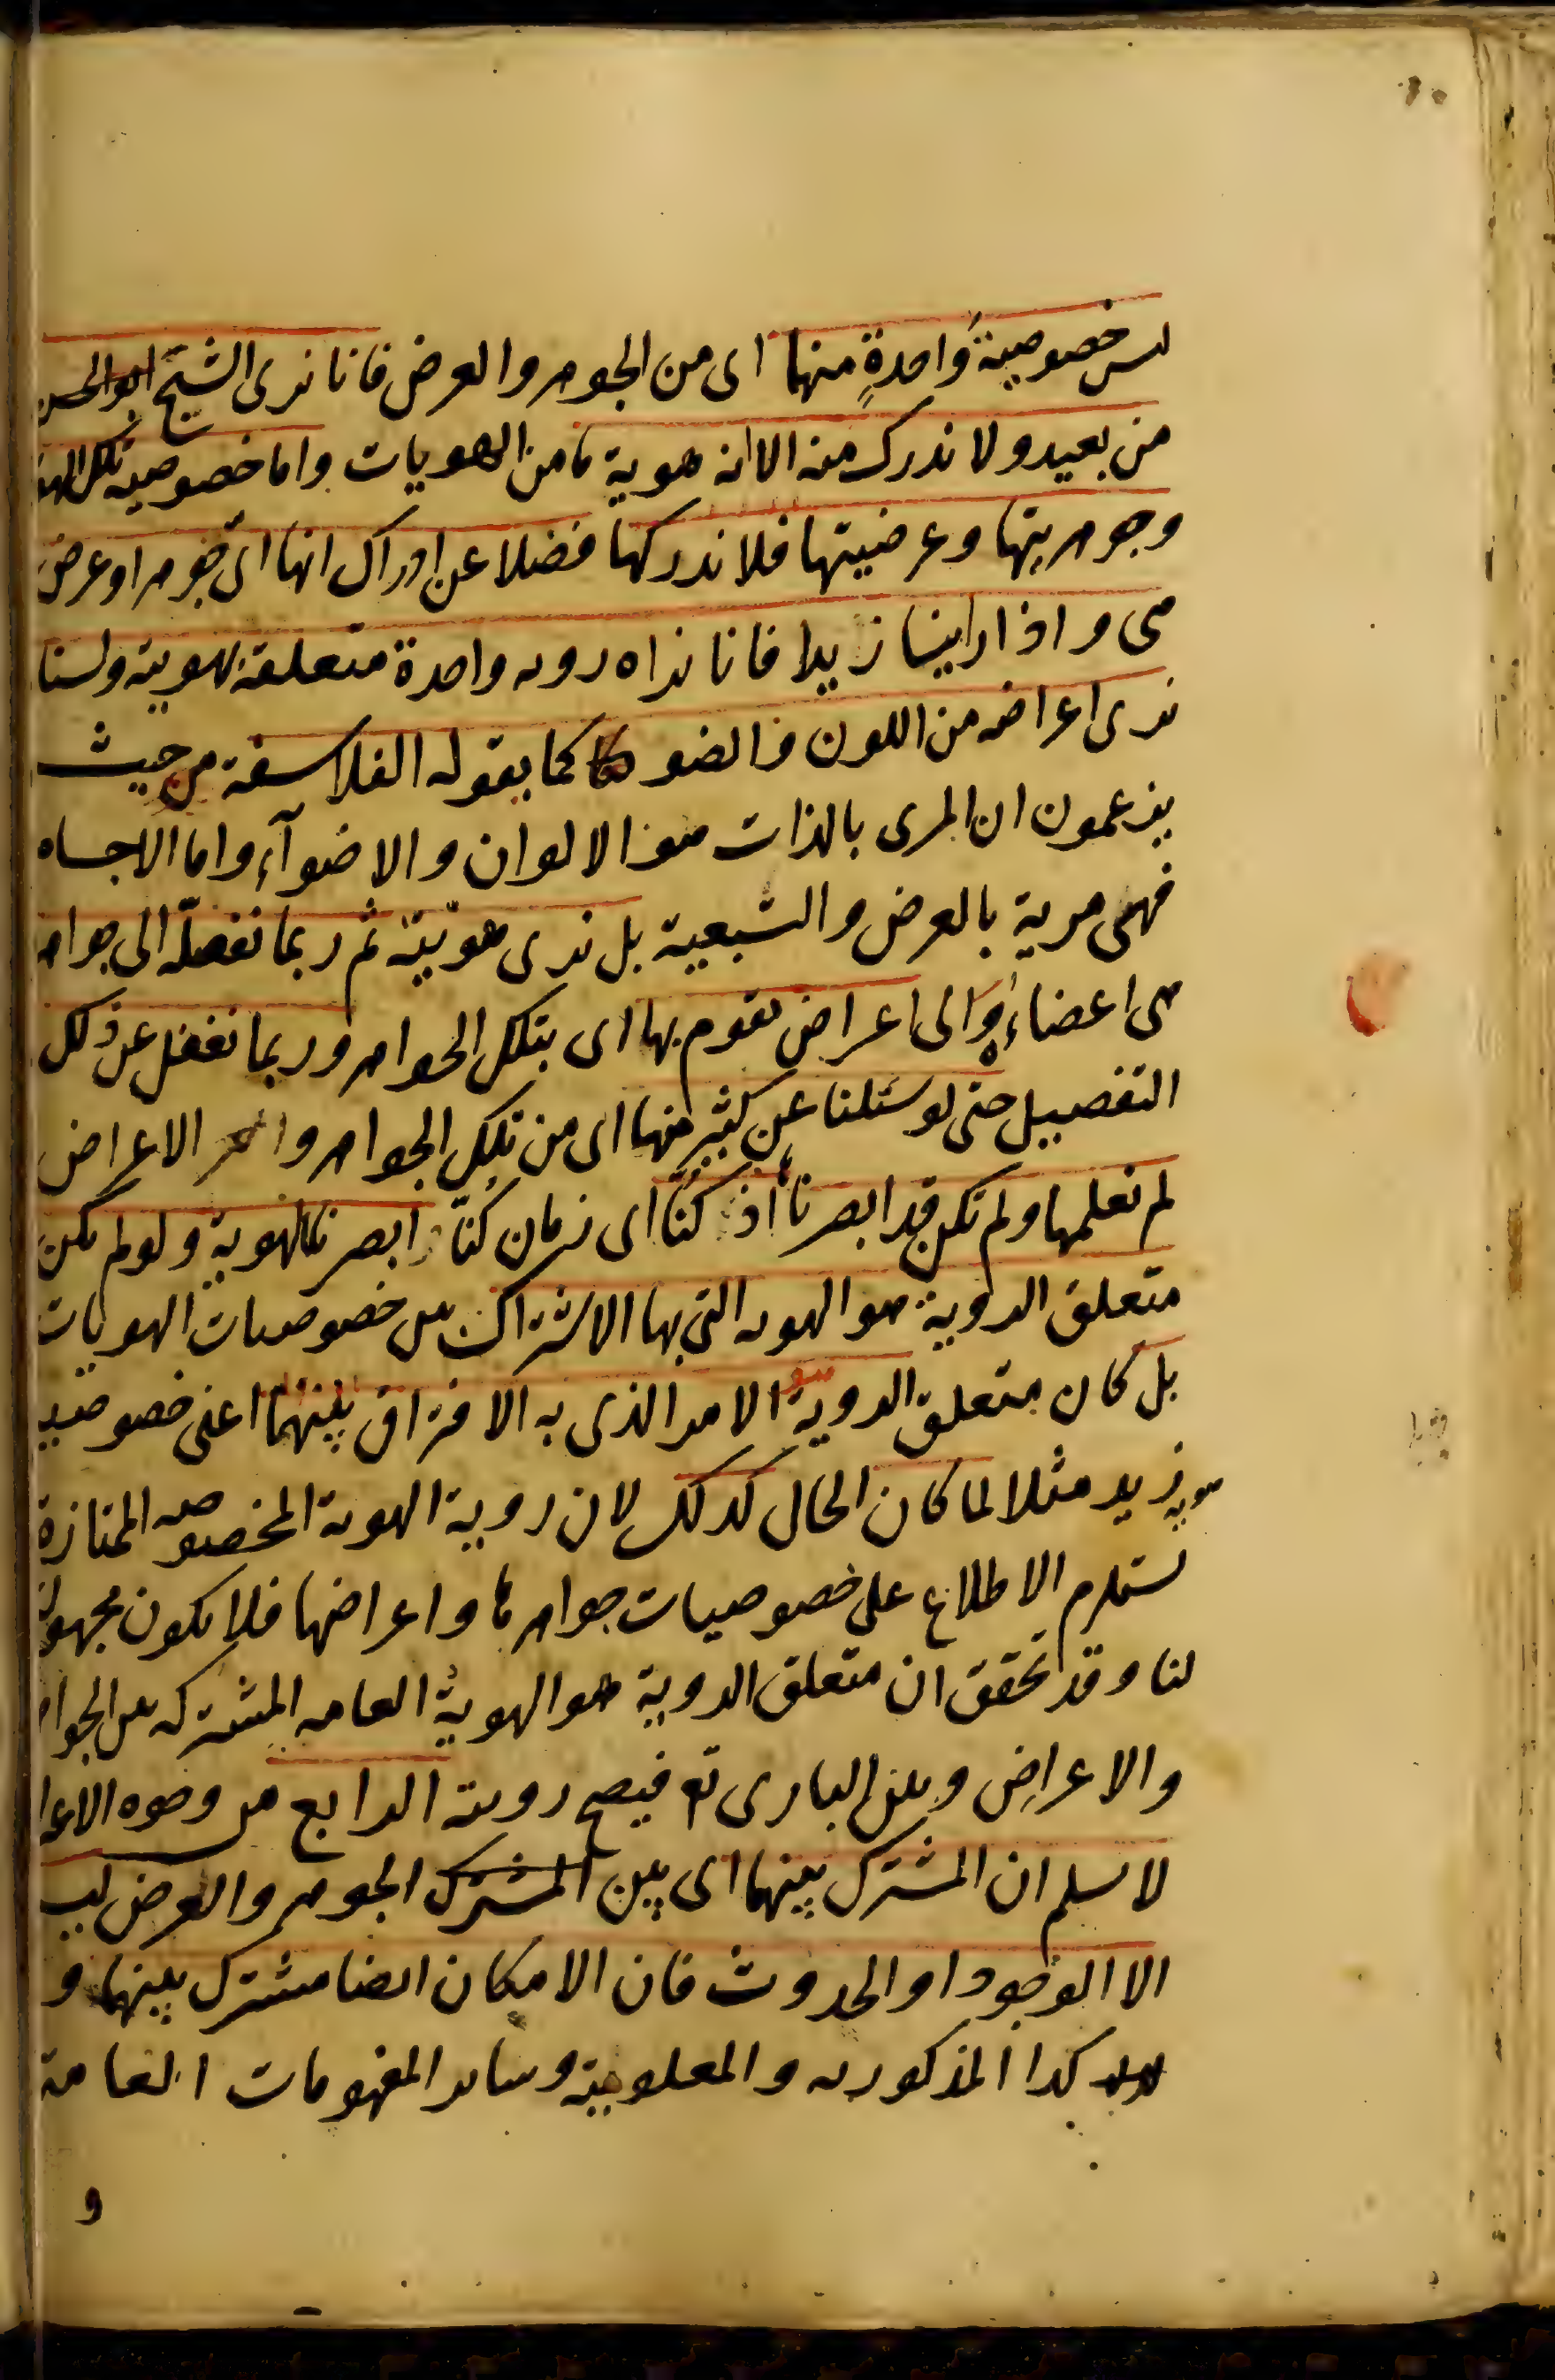 ليس خصوصية واحدة منهما اى من الجوهر والعرض فانا نرى الشبح
من بعيد ولا ندرك منه الا انه هوية ما من الهويات واما خصوصية تلك الهو
وجوهريتها وعرضيتها فلا ندركها فضلا عن ادراك انها اى جوهر او عرض
هى واذا راينا زيدا فانا نراه رويه واحدة متعلقة بهويته ولسنا
نرى اعراضه من اللون والضو كما يقوله الفلاسفة من حيث
يزعمون ان المرى بالذات هو الالوان والاضوآء واما الاجسام
فهى مرية بالعرض والتبعية بل نرى هويّته ثم ربما نفصله الى جواهر
هى اعضاءه والى اعراض تقوم بها اى بتلك الجواهر وربما نغفل عن ذلك
التفصيل حتى لو سئلنا عن كثير منها اى من تلك الجواهر و الاعراض
لم نعلمها ولم نكن قد ابصرنا اذ كنّا اى زمان كنّا ابصرنا الهوية ولو لم يكن
متعلق الروية هو الهويه التى بها الاشتراك بين خصوصيات الهويات
بل كان متعلق الروية هو الامر الذى به الافتراق بينهما اعنى خصوصية
هوية زيد مثلا لما كان الحال كذلك لان روية الهوية المخصوصه الممتازة
تستلزم الاطلاع على خصوصيات جواهرها واعراضها فلا يكون مجهولة
لنا وقد تحقق ان متعلق الروية هو الهوية العامه المشتركه بين الجواهر
والاعراض وبين البارى تع فيصح رويته الرابع من وجوه الاعترا
لا نسلم ان المشترك بينهما اى بين المشترك الجوهر والعرض ليس
الا الوجود او الحدوث فان الامكان ايضا مشترك بينهما و
كذا المذكوريه والمعلومية وساير المفهومات العامة
و